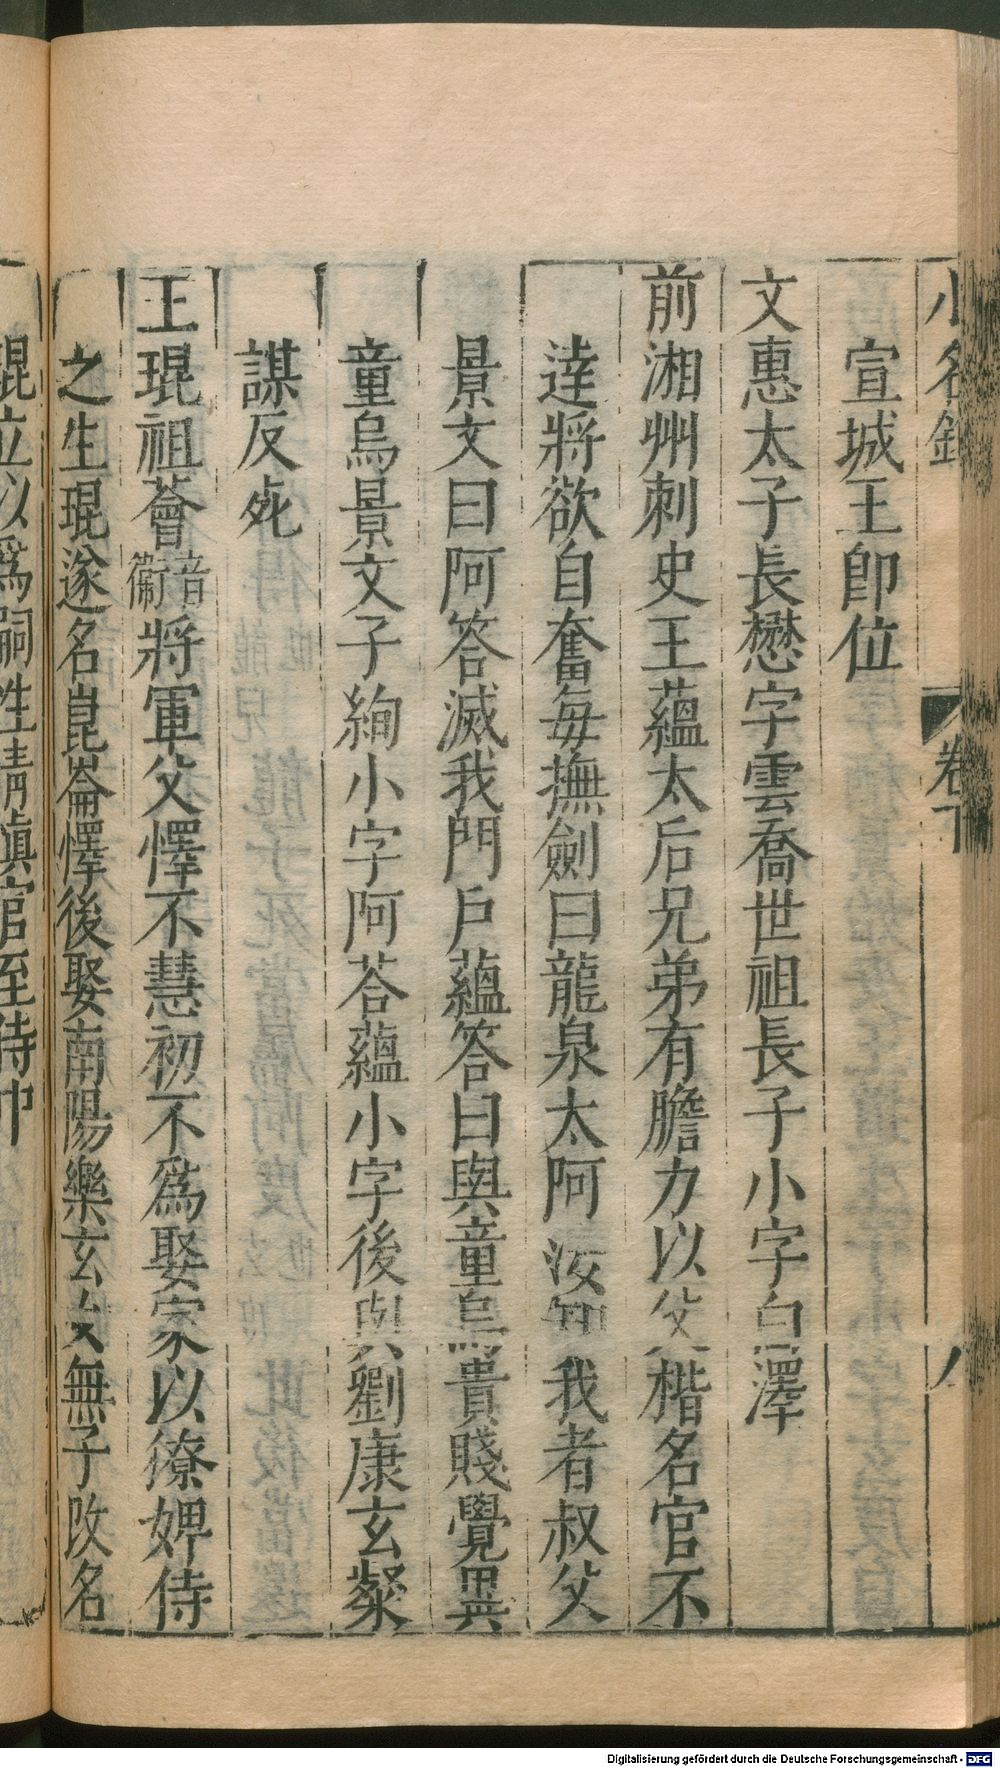 小名錄 卷下 八
宣城王卽位
文惠太子長懋字雲喬世祖長子小字白澤
前湘州刺史王蘊太后兄弟有膽力以父楷名官不
達將欲自奮每撫劍曰龍泉太阿汝知我者叔父
景文曰阿答滅我門戶蘊答曰與童烏貴賤覺異
童烏景文子絢小字阿荅蘊小字後與劉康玄粲
謀反死
王琨祖薈音衞將軍父懌不慧初不爲娶家以獠婢侍
之生琨遂名崑崙懌後娶南陽樂玄女無子改名
琨立以爲嗣性清慎官至侍中
Digitalisierung gefördert durch die Deutsche Forschungsgemeinschaft - DFG